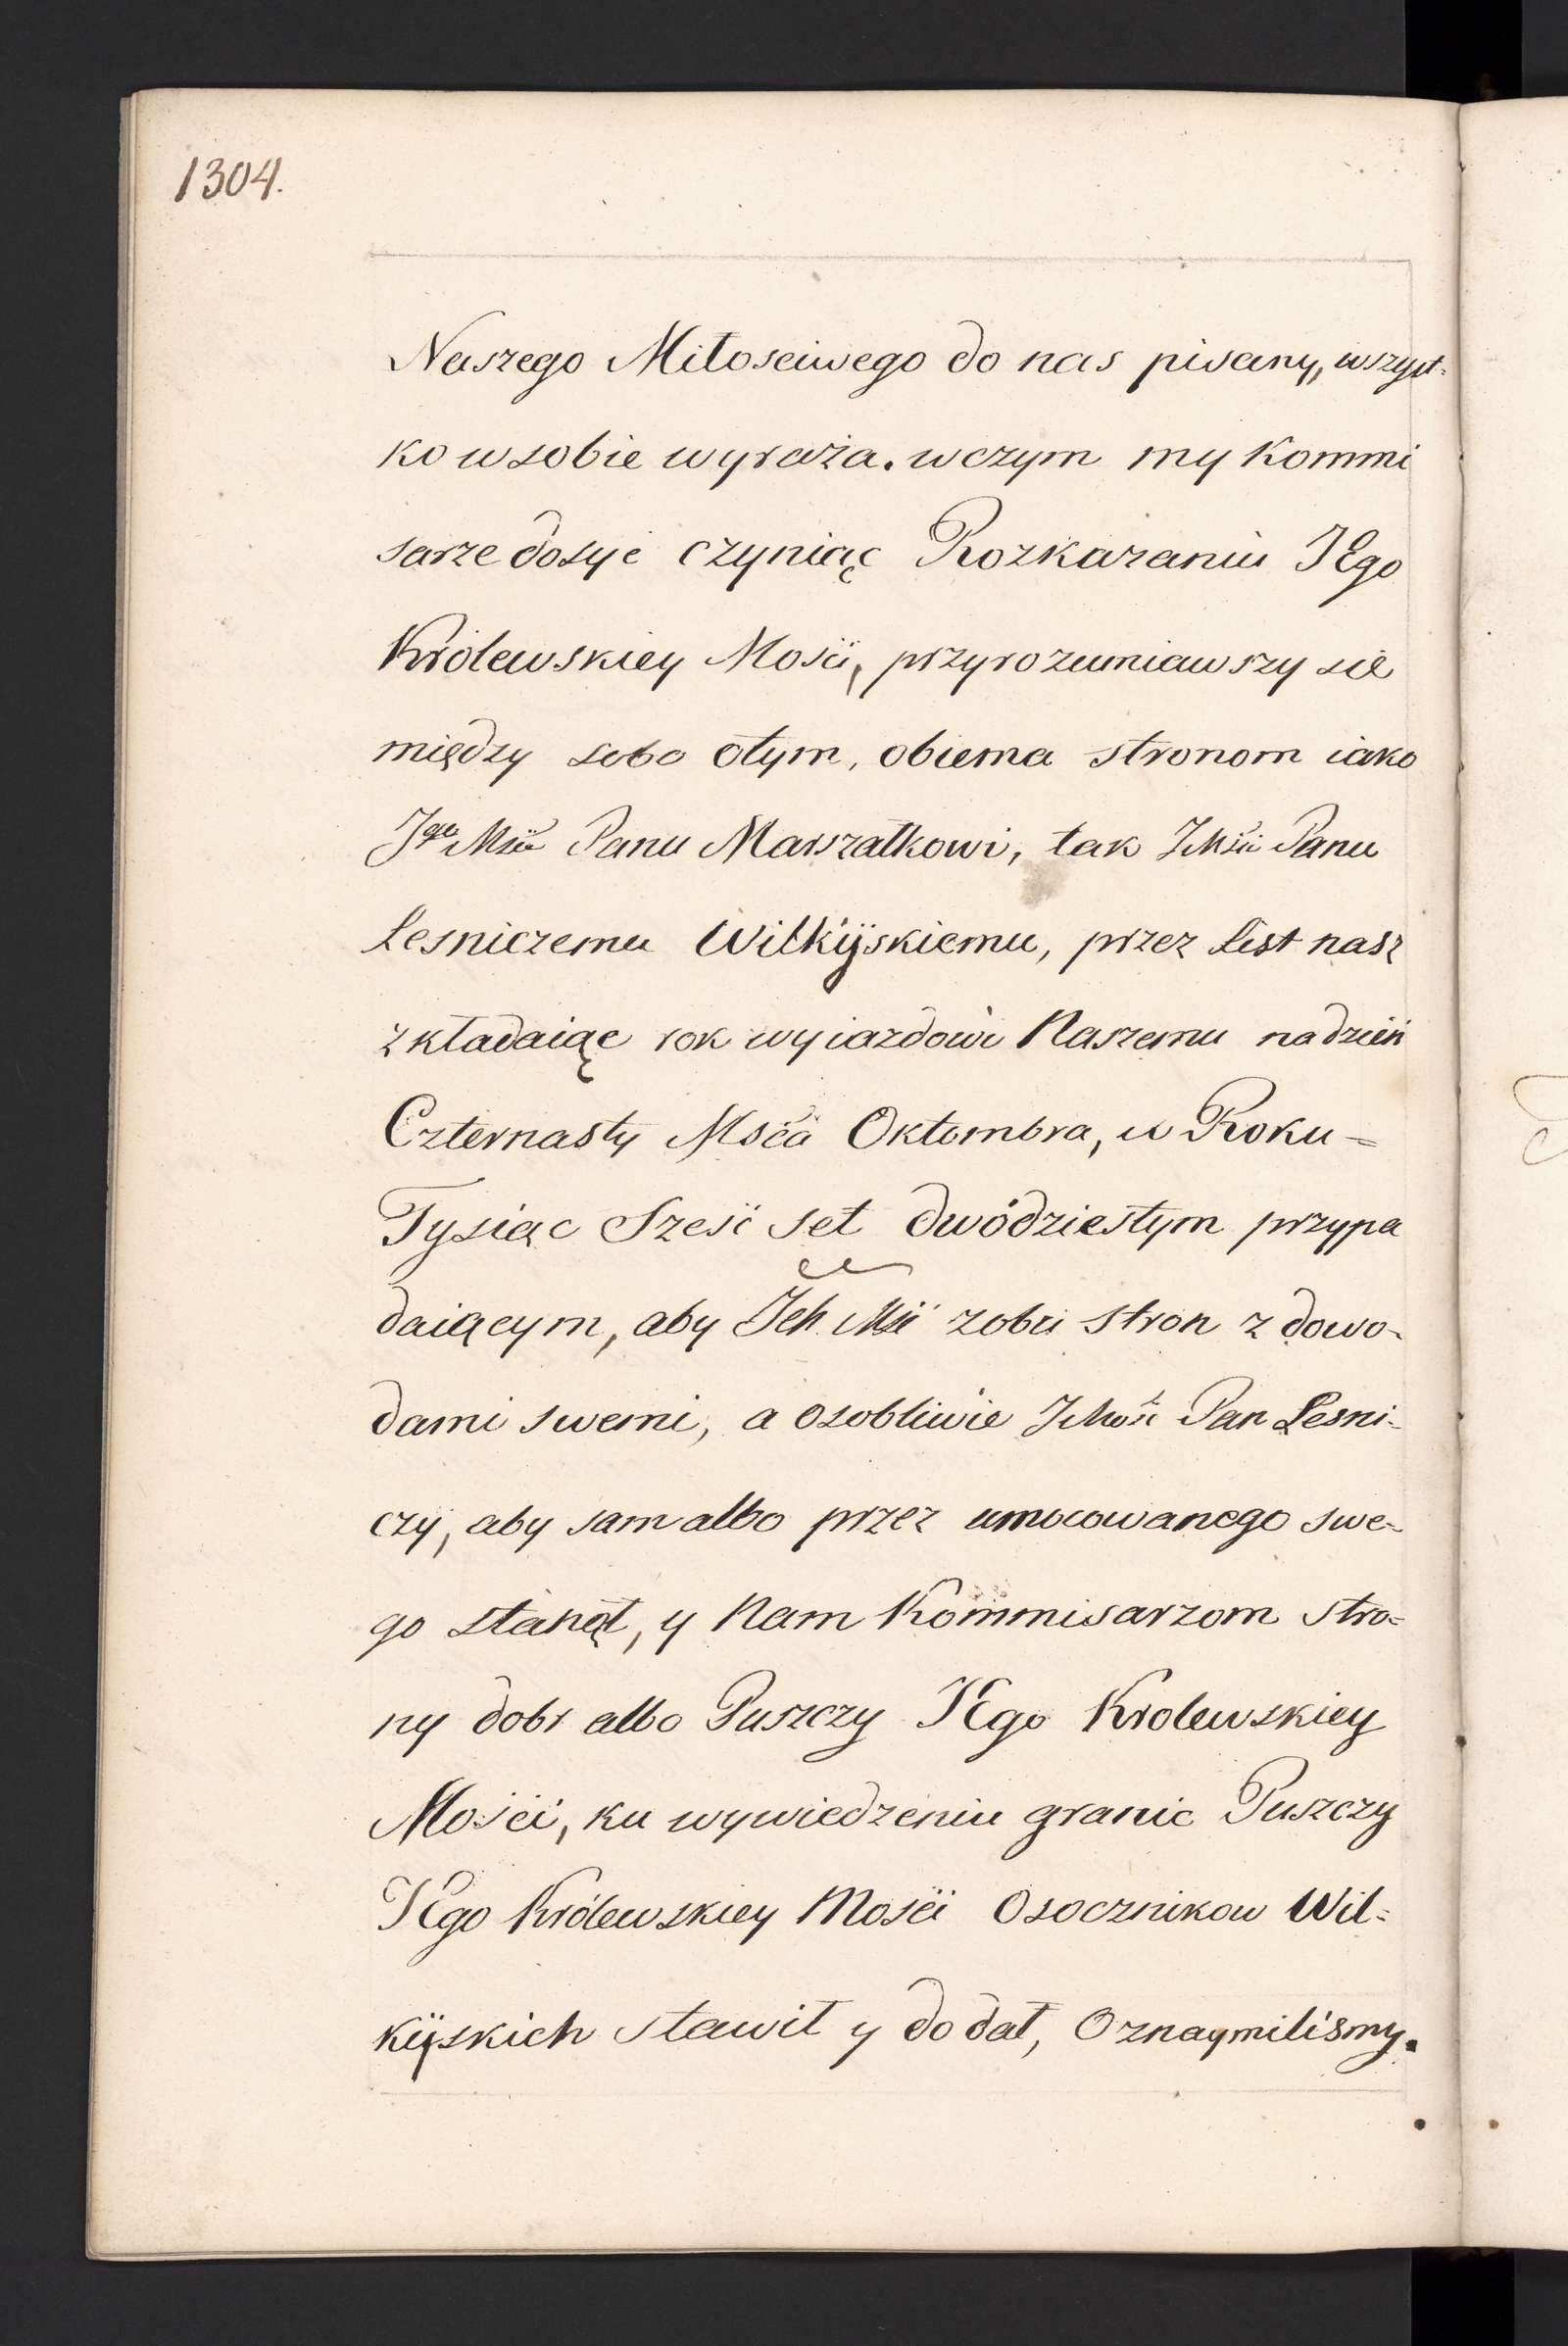 1304.
Naszego Miłosciwego do nas pisany, wszyst-
ko w sobie wyraża. w czym my Kommi
sarze dosyć czyniąc Rozkazaniu JEgo
Królewskiey Mości, przyrozumiawszy sie
między sobo otym, obiema stronom iako
Jgo Msci Panu Marszałkowi, tak JMsci Panu
Lesniczemu Wilkijskiemu, przez List nasz
zkładaiąc rok wyiazdowi Naszemu na dzień
Czternasty Msca Oktombra, w Roku =
Tysiąc Sześć set dwódziestym przypa
daiącym, aby Ich Mść z obu stron z dowo-
dami swemi, a osobliwie JMość Pan Lesni-
czy, aby sam albo przez umocowanego swe-
go stanął, y Nam Kommisarzom stro=
ny dobr albo Puszczy JEgo Krolewskiey
Mości, ku wywiedzeniu granic Puszczy
JEgo Królewskiey Mości Osocznikow Wil=
kijskich stawił y dodał, Oznaymiliśmy.